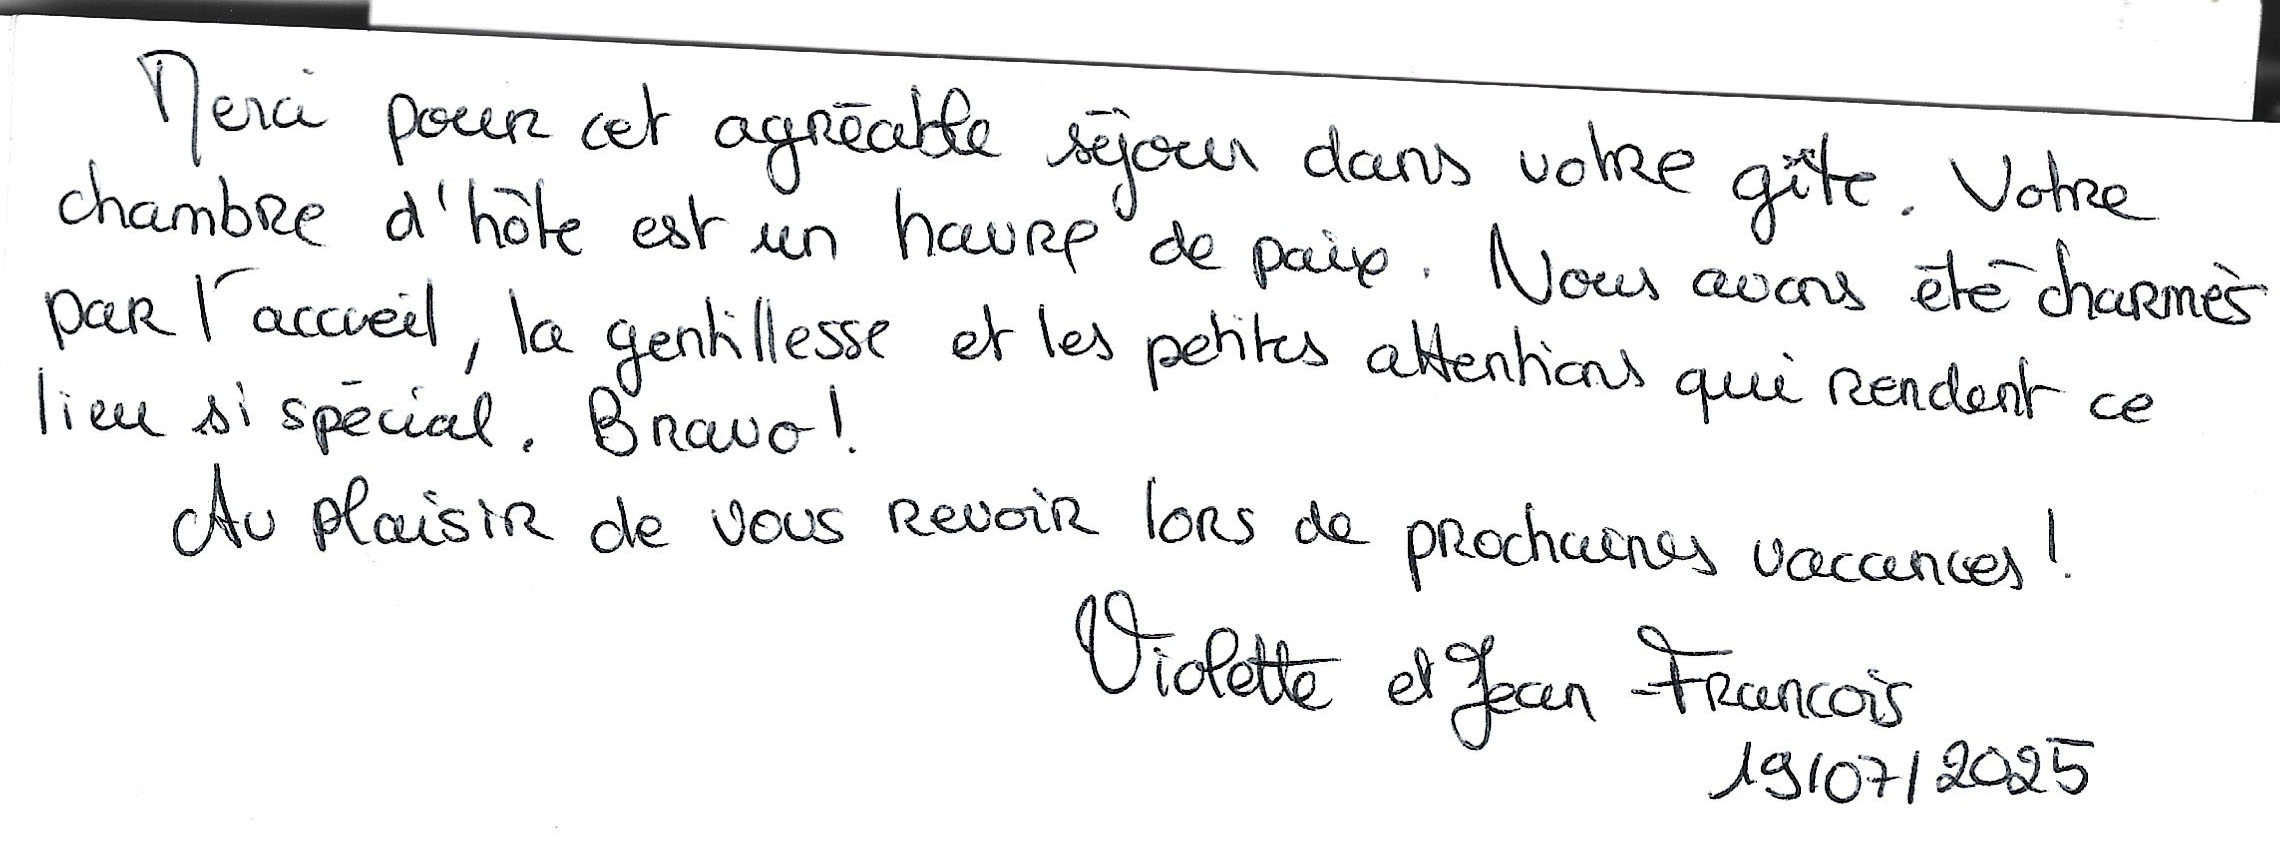 Merci pour cet agréable séjour dans votre gîte. Votre
chambre d'hôte est un havre de paix. Nous avons été charmés
par l'accueil, la gentillesse et les petites attentions qui rendent ce
lieu si spécial. Bravo!
Au plaisir de vous revoir lors de prochaines vacances!
Violette et Jean-Francois
19/07/2025